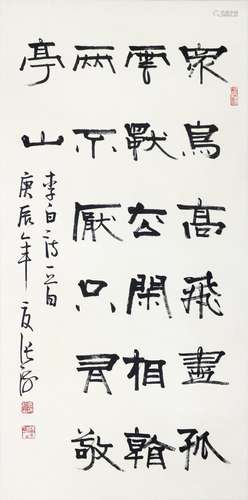 眾鳥高飛盡孤
雲獨去閑相看
兩不厭只有敬
亭山
李白詩一首
庚辰年夏張海